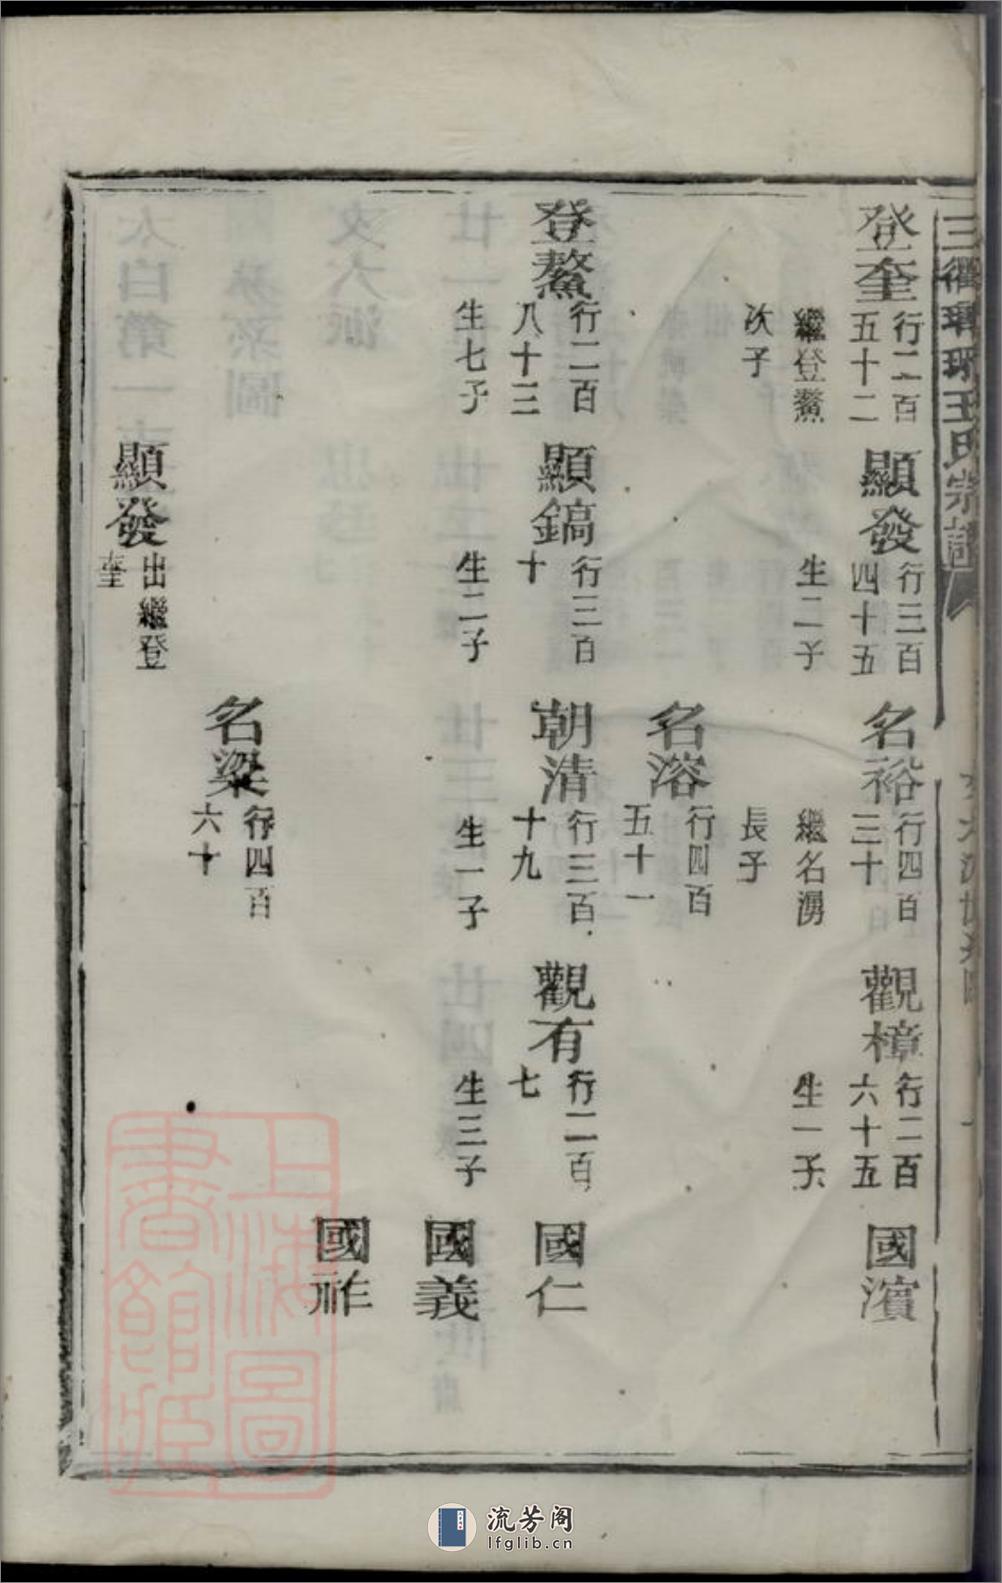 三衢琅琊王氏宗譜
登奎
行二百
五十二
繼登鰲
次子
顯發
行三百
四十五
生二子
名裕
行四百
三十
繼名湧
長子
觀樟
行二百
六十五
生一子
國濱
名溶
行四百
五十一
登鰲
行二百
八十三
生七子
顯鎬
行三百
十
生二子
朝清
行三百
十九
生一子
觀有
行二百
七
生三子
國仁
國義
國祚
名梁
行四百
六十
顯發
出繼登
奎
上海圖
書館藏
流芳阁
lfglib.cn